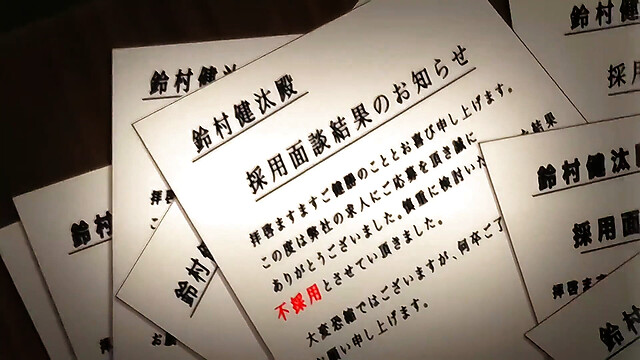 鈴村健汰殿
採用面談結果のお知らせ
拝啓ますますご健勝のこととお喜び申し上げます。
この度は弊社の求人にご応募を頂き誠に
ありがとうございました。慎重に検討いた
不採用とさせてい頂きました。
大変恐縮ではございますが、何卒ご了
お願い申し上げます。
鈴村健
鈴村
鈴村
鈴村健
採用
結果
鈴村健汰
採用面
拝啓ます
鈴村